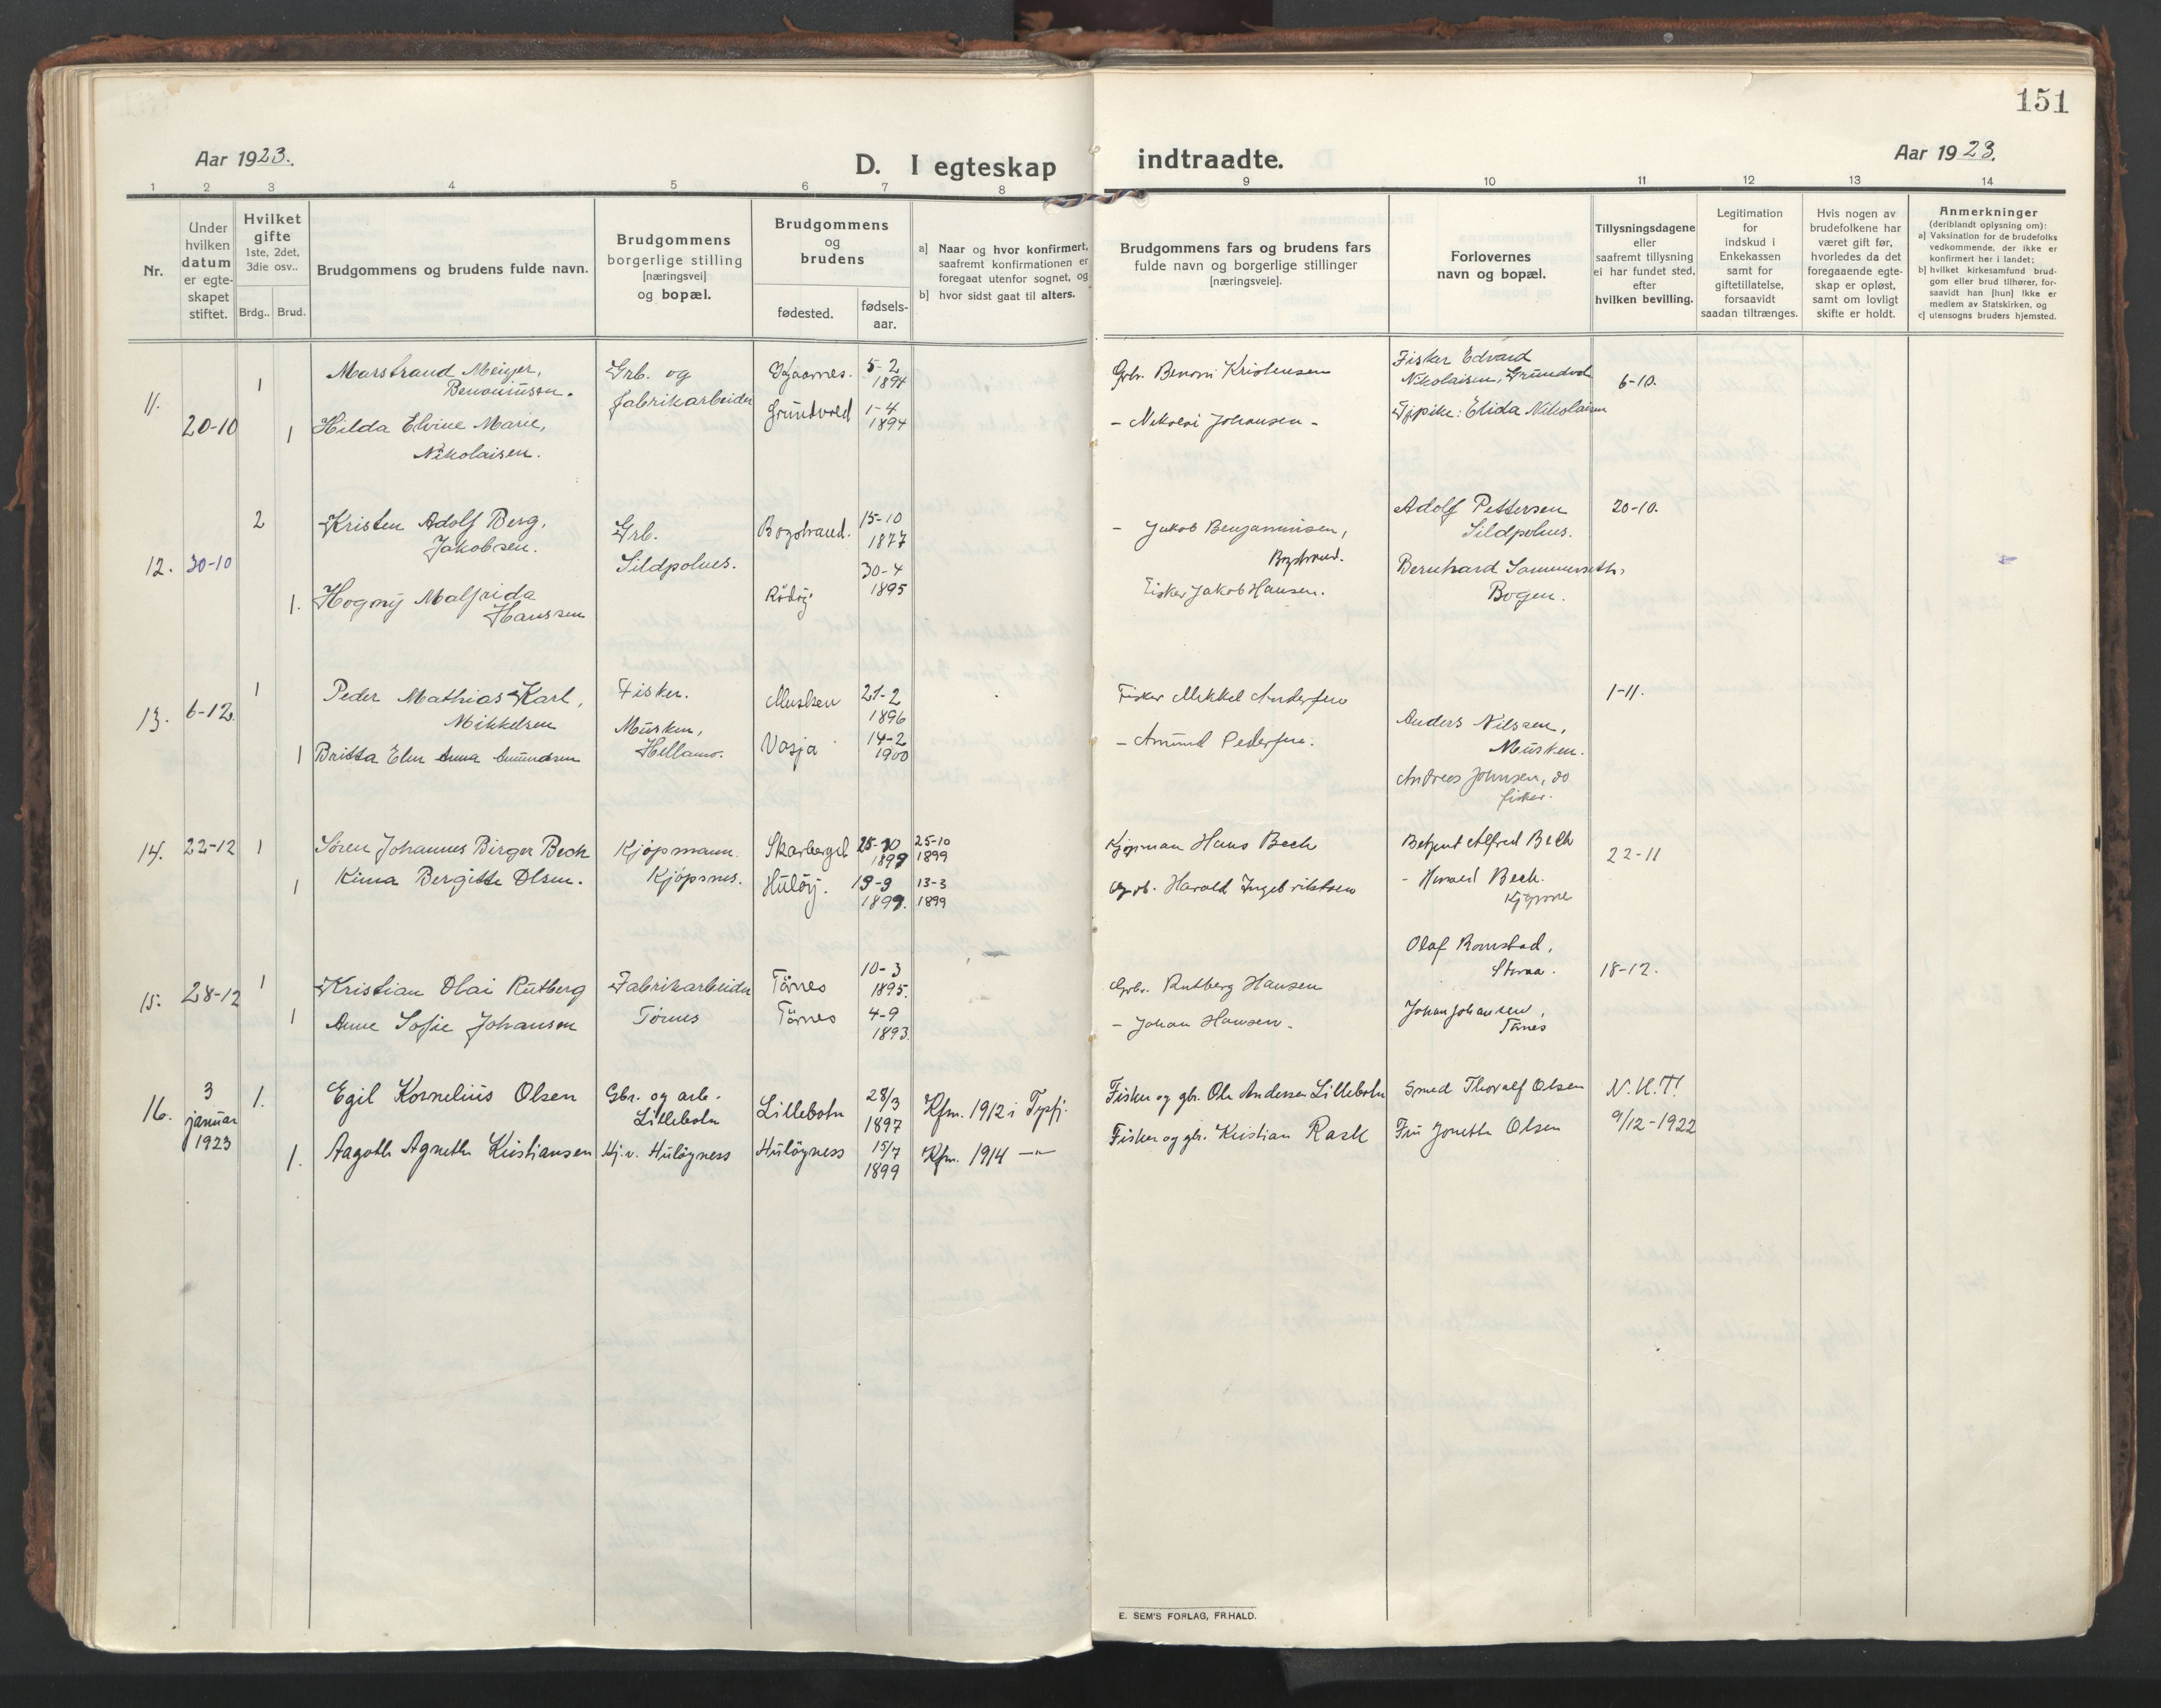 151
Aar 1923.
D. I egteskap indtraadte.
Aar 1923.
1 2 3 4 5 6 7 8 9 10 11 12 13 14
Nr.
Under
hvilken
datum
er egte-
skapet
stiftet.
Hvilket
gifte
1ste, 2det,
3die osv..
Brdg.. Brud.
Brudgommens og brudens fulde navn.
Brudgommens
borgerlige stilling
[næringsvei]
og bopæl.
Brudgommens
og
brudens
fødested.
fødsels-
aar.
a] Naar og hvor konfirmert,
saafremt konfirmationen er
foregaat utenfor sognet, og
b] hvor sidst gaat til alters.
Brudgommens fars og brudens fars
fulde navn og borgerlige stillinger
[næringsveie].
Forlovernes
navn og bopæl.
Tillysningsdagene
eller
saafremt tillysning
ei har fundet sted,
efter
hvilken bevilling.
Legitimation
for
indskud i
Enkekassen
samt for
giftetillatelse,
forsaavidt
saadan tiltrænges.
Hvis nogen av
brudefolkene har
været gift før,
hvorledes da det
foregaaende egte-
skap er opløst,
samt om lovligt
skifte er holdt.
Anmerkninger
(deriblandt oplysning om):
a] Vaksination for de brudefolks
vedkommende, der ikke er
konfirmert her i landet;
b] hvilket kirkesamfund brud-
gom eller brud tilhører, for-
saavidt han [hun] ikke er
medlem av Statskirken, og
c] utensogns bruders hjemsted.
11.
20-10
1
1
Marstrand Meiyer,
Benoniussen.
Hilda Elvine Marie,
Nikolaisen.
Grb. og
fabrikarbeider
Grundvold
5-2
1894
1-4
1894
Grb. Benoni Kristensen
- Nikolai Johansen -
Fisker Edvard
Nikolaisen, Grundvol
Tjpike: Elida Nikolaisen
6-10.
12.
30-10
2
1.
Kristen Adolf Berg,
Jakobsen.
Hogny Malfrida
Hanssen
Grb.
Sildpolnes.
Bogstrand.
Rödöy
15-10
1877
30-4
1895
- Jakob Benjaminsen,
Bogstrand.
Fisker Jakob Hansen.
Adolf Pettersen
Sildpolnes.
Bernhard Sommerseth,
Bogen.
20-10.
13.
6-12.
1
1
Peder Mathias Karl,
Mikkelsen
Britta Elen Anna Amundsen
Fisker.
Musken,
Hellamo.
Musken
Vasja
21-2
1896
14-2
1900
Fisker Mikkel Andersen
- Amund Pedersen.
Anders Nilssen,
Musken.
Andreas Johnsen, do
fisker.
1-11.
14.
22-12
1
1
Søren Johannes Birger Bech
Kima Bergitte Olsen.
Kjøpmann.
Kjøpsnes.
Skarberget
Huløy.
25-10
1899
19-9
1899.
25-10
1899
13-3
1899
Kjøpman Hans Bech
Grb. Harald Ingebriktsen
Betjent Alfred Bech
- Harald Bech.
22-11
15.
28-12
1
1
Kristian Olai Rutberg
Anne Sofie Johansen
Fabrikarbeider
Törnes
Törnes
Törnes
10-3
1895.
4-9
1893.
Grbr. Rutberg Hansen
- Johan Hansen -
Olaf Bomstad,
Storaa.
Johan Johansen,
Törnes
18-12.
16.
3
januar
1923
1.
1.
Egil Kornelius Olsen
Aagoth Agneth Kristiansen
Gbr. og arb.
Lillebotn
Hj. v. Huløyness
Lillebotn
Huløyness
28/3
1897
15/7
1899
Kfm. 1912 i Tysfj.
Kfm. 1914 -"-
Fisker og gbr. Ole Andersen Lillebotn
Fisker og gbr. Kristian Rask
Smed Thoralf Olsen
Fru Jonette Olsen
N. K. T!
9/12-1922
E. SEM'S FORLAG, FR.HALD.